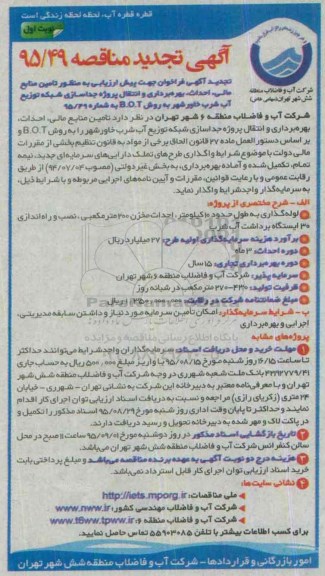 قطره قطره آب، لحظه لحظه زندگی است
نوبت اول
آگهی تجدید مناقصه ۹۵/۴۹
شرکت آب و فاضلاب منطقه
شش شهر تهران (سهامی خاص)
تجدید آگهی فراخوان جهت پیش ارزیابی به منظور تامین منابع
مالی، احداث، بهره‌برداری و انتقال پروژه جداسازی شبکه توزیع
آب شرب خاورشهر به روش B.O.T به شماره ۹۵/۴۹
شرکت آب و فاضلاب منطقه ۶ شهر تهران در نظر دارد تامین منابع مالی، احداث،
بهره‌برداری و انتقال پروژه جداسازی شبکه توزیع آب شرب خاورشهر را به روش B.O.T و
بر اساس دستورالعمل ماده ۲۷ قانون الحاق برخی از مواد به قانون تنظیم بخشی از مقررات
مالی دولت با موضوع شرایط واگذاری طرح‌های تملک دارایی‌های سرمایه‌ای جدید، نیمه
تمام، تکمیل شده و آماده بهره‌برداری، به بخش غیردولتی (مصوب ۹۴/۰۷/۰۴) از طریق
رقابت عمومی و با رعایت قوانین، مقررات و آیین نامه‌های اجرایی مربوطه و با شرایط ذیل،
به سرمایه‌گذار واجد شرایط واگذار نماید.
الف - شرح مختصری از پروژه:
لوله‌گذاری به طول حدود ۱۰ کیلومتر، احداث مخزن ۲۰۰ مترمکعبی، نصب و راه‌اندازی
۳۰ ایستگاه برداشت آب شرب
برآورد هزینه سرمایه‌گذاری اولیه طرح: ۲۷ میلیارد ریال
دوره احداث: ۳ ماه
دوره بهره‌برداری تجاری: ۱۵ سال
سرمایه پذیر: شرکت آب و فاضلاب منطقه ۶ شهر تهران
ظرفیت تولید: ۴۳۰-۲۷۰ مترمکعب در شبانه روز
مبلغ ضمانتنامه شرکت در رقابت: ریال
ب - شرایط سرمایه‌گذار: امکان تأمین سرمایه مورد نیاز و داشتن سابقه مدیریتی،
اجرایی و بهره‌برداری
پروژه‌های مشابه
۱ مهلت خرید و محل دریافت اسناد: سرمایه‌گذاران واجد شرایط می‌توانند حداکثر
تا ساعت ۱۶/۱۵ روز شنبه مورخ ۹۵/۰۸/۱۵ با واریز مبلغ ۵۰۰,۰۰۰ ریال به حساب جاری
بانک ملت شعبه شهرری در وجه شرکت آب و فاضلاب منطقه شش شهر
تهران و با معرفی‌نامه معتبر به دبیرخانه این شرکت به نشانی تهران - شهرری - خیابان
۲۴ متری (زکریای رازی) مراجعه و نسبت به دریافت اسناد ارزیابی توان اجرای کار اقدام
نمایند و حداکثر تا پایان وقت اداری روز شنبه مورخ ۹۵/۰۸/۲۹ اسناد مذکور را تکمیل و
در پاکت لاک و مهر شده به دبیرخانه تحویل و رسید دریافت دارند.
۲ تاریخ بازگشایی اسناد مذکور در روز دوشنبه مورخ ۹۵/۰۹/۰۱ ساعت ۱۱ صبح در محل
سالن کنفرانس شرکت آب و فاضلاب منطقه شش شهر تهران می‌باشد.
۳ هزینه درج دو نوبت آگهی به عهده برنده مناقصه می‌باشد و مبلغ پرداختی بابت
خرید اسناد ارزیابی توان اجرای کار قابل استرداد نمی‌باشد.
۴ نشانی سایت‌ها:
ملی مناقصات: http://iets.mporg.ir
شرکت آب و فاضلاب مهندسی کشور: www.nww.ir
شرکت آب و فاضلاب منطقه ۶: www.t6ww.tpww.ir
برای کسب اطلاعات بیشتر با تلفن ۵۵۹۰۳۰۸۵ تماس حاصل نمایید.
امور بازرگانی و قراردادها - شرکت آب و فاضلاب منطقه شش شهر تهران